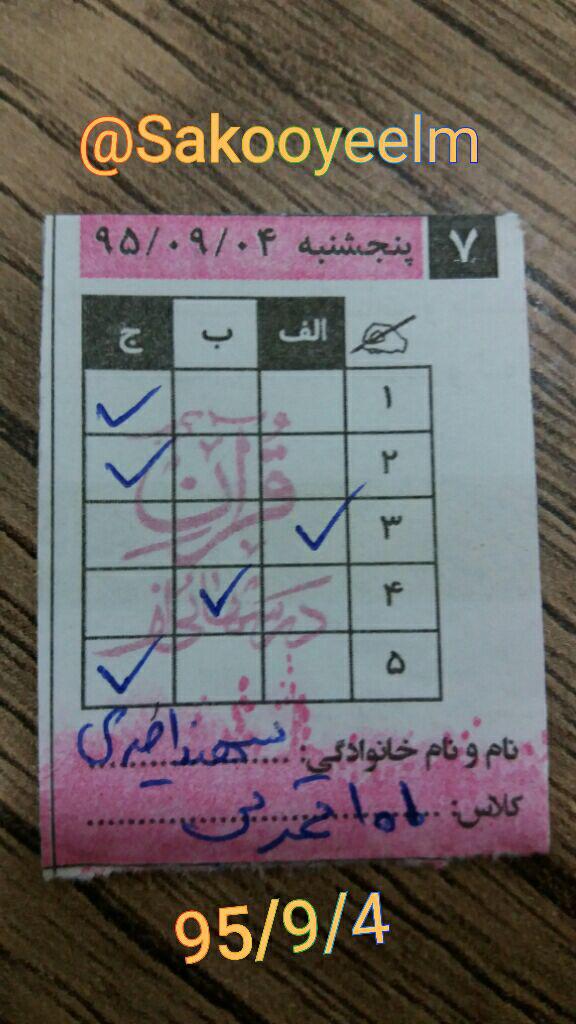 @Sakooyeelm
۷ پنجشنبه ۹۵/۰۹/۰۴
الف ب ج
۱
۲
۳
۴
۵
درسهائی از
قرآن
نام و نام خانوادگی: سهند
کلاس: ۱۰۱ تجربی
95/9/4